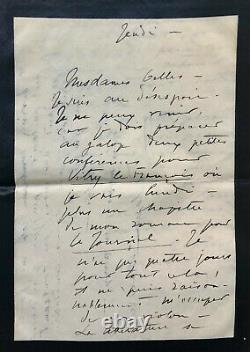 Jeudi —
Mesdames belles —
Je suis au désespoir.
Je ne peux venir,
car je dois préparer
au galop deux petites
conférences pour
Vitry le François où
je vais lundi —
plus un chapitre
de mon roman pour
le Journal. Je
n'ai que quatre jours
pour tout cela,
et ne puis raison-
nablement m'occuper
de violon —
La se